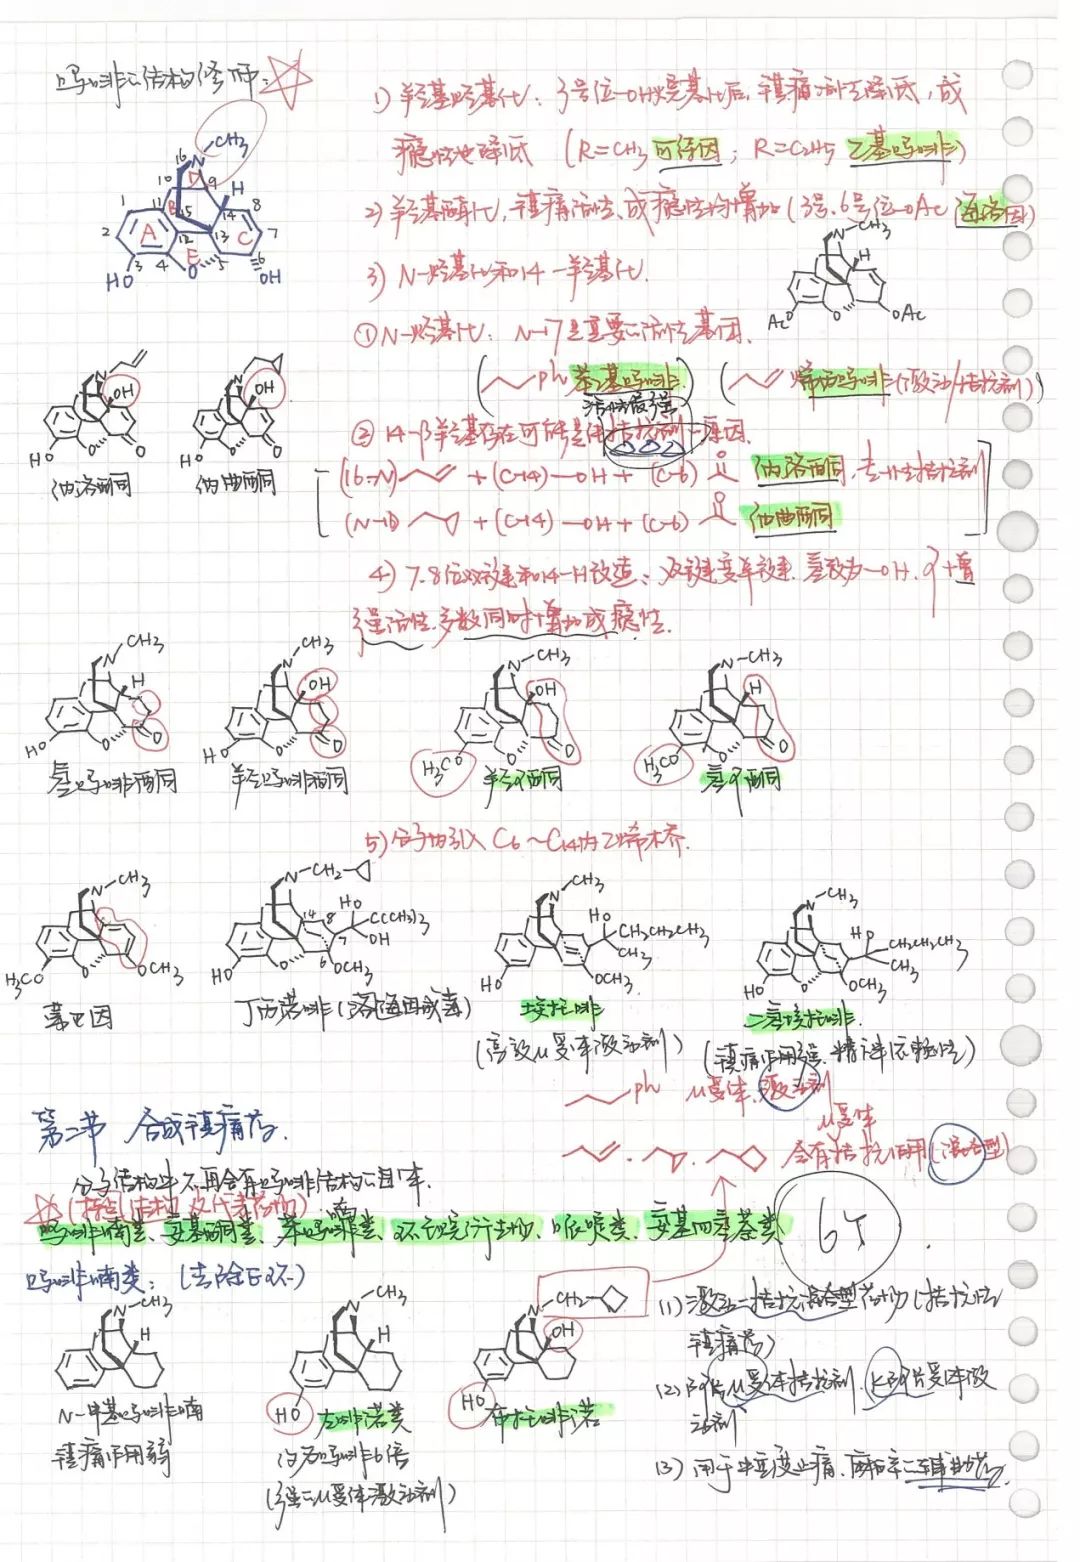 吗啡の结构修饰：
1) 羟基烃基化：3号位-OH烃基化后，镇痛活性降低，成
瘾性也降低 (R=CH3 可待因；R=C2H5 乙基吗啡)
2) 羟基酯化，镇痛活性、成瘾性均增加(3号、6号位-OAc 海洛因)
3) N-烃基化和14-羟基化.
①N-烃基化：N-17是重要の活性基团.
(ph 苯乙基吗啡) (烯丙吗啡(激动/拮抗剂))
活性最强
②14-β羟基存在可能是作拮抗剂の原因.
(16-N) + (C-14)-OH + (C-6) O 纳洛酮,专一性拮抗剂
(N-17) + (C-14)-OH + (C-6) O 纳曲酮
4) 7.8位双键和14-H改造：双键变单键、氢改为-OH、可增
强活性、多数同时增加成瘾性.
CH3 N 16 10 D 9 H 1 11 B 15 14 8 2 A 12 13 C 7 E HO 3 4 O 5 6 OH
N-CH3 H AcO O OAc
N OH HO O O
纳洛酮
N OH HO O O
纳曲酮
N-CH3 H HO O O
氢吗啡酮
N-CH3 OH HO O O
羟吗啡酮
N-CH3 OH H3CO O O
羟可酮
N-CH3 H H3CO O O
氢可酮
5) 分子内引入C6~C14内乙烯桥.
N-CH3 H3CO O OCH3
蒂巴因
N-CH2 HO 14 8 C(CH3)3 7 OH HO O 6 OCH3
丁丙诺啡(海洛因戒毒)
N-CH3 HO CH2CH2CH3 CH3 HO O OCH3
埃托啡
(高效μ受体激动剂)
N-CH3 HO CH2CH2CH3 CH3 HO O OCH3
二氢埃托啡
(镇痛作用强、精神依赖性)
ph μ受体、激动剂
μ受体
含有拮抗作用(混合型)
第二节 合成镇痛药.
分子结构中不再含有吗啡结构の自体.
(掌握结构及代表药物)
吗啡喃类、氨基酮类、苯吗喃类、环己烷衍生物、哌啶类、氨基四氢萘类
6个
吗啡喃类：(去除E环)
N-CH3 H
N-甲基吗啡喃
镇痛作用弱
N-CH3 H HO
左啡诺类
约为吗啡6倍
(强のμ受体激动剂)
N-CH2 OH HO
布托啡诺
(1) 激动-拮抗混合型药物(拮抗性
镇痛药)
(2) 阿片μ受体拮抗剂、κ阿片受体激
动剂
(3) 用于中重度止痛、麻醉の辅助药.